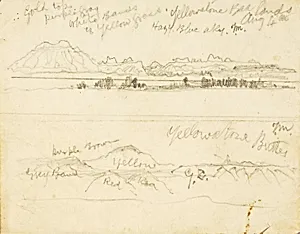 Gold
Purple Gray
White Bands
Yellow Grass
Yellowstone Bad Lands
Hazy Blue sky. Tm.
Aug 4th
Tm.
Yellowstone Buttes
Purple Brown
Yellow
Grey Band
Red
Y. R.